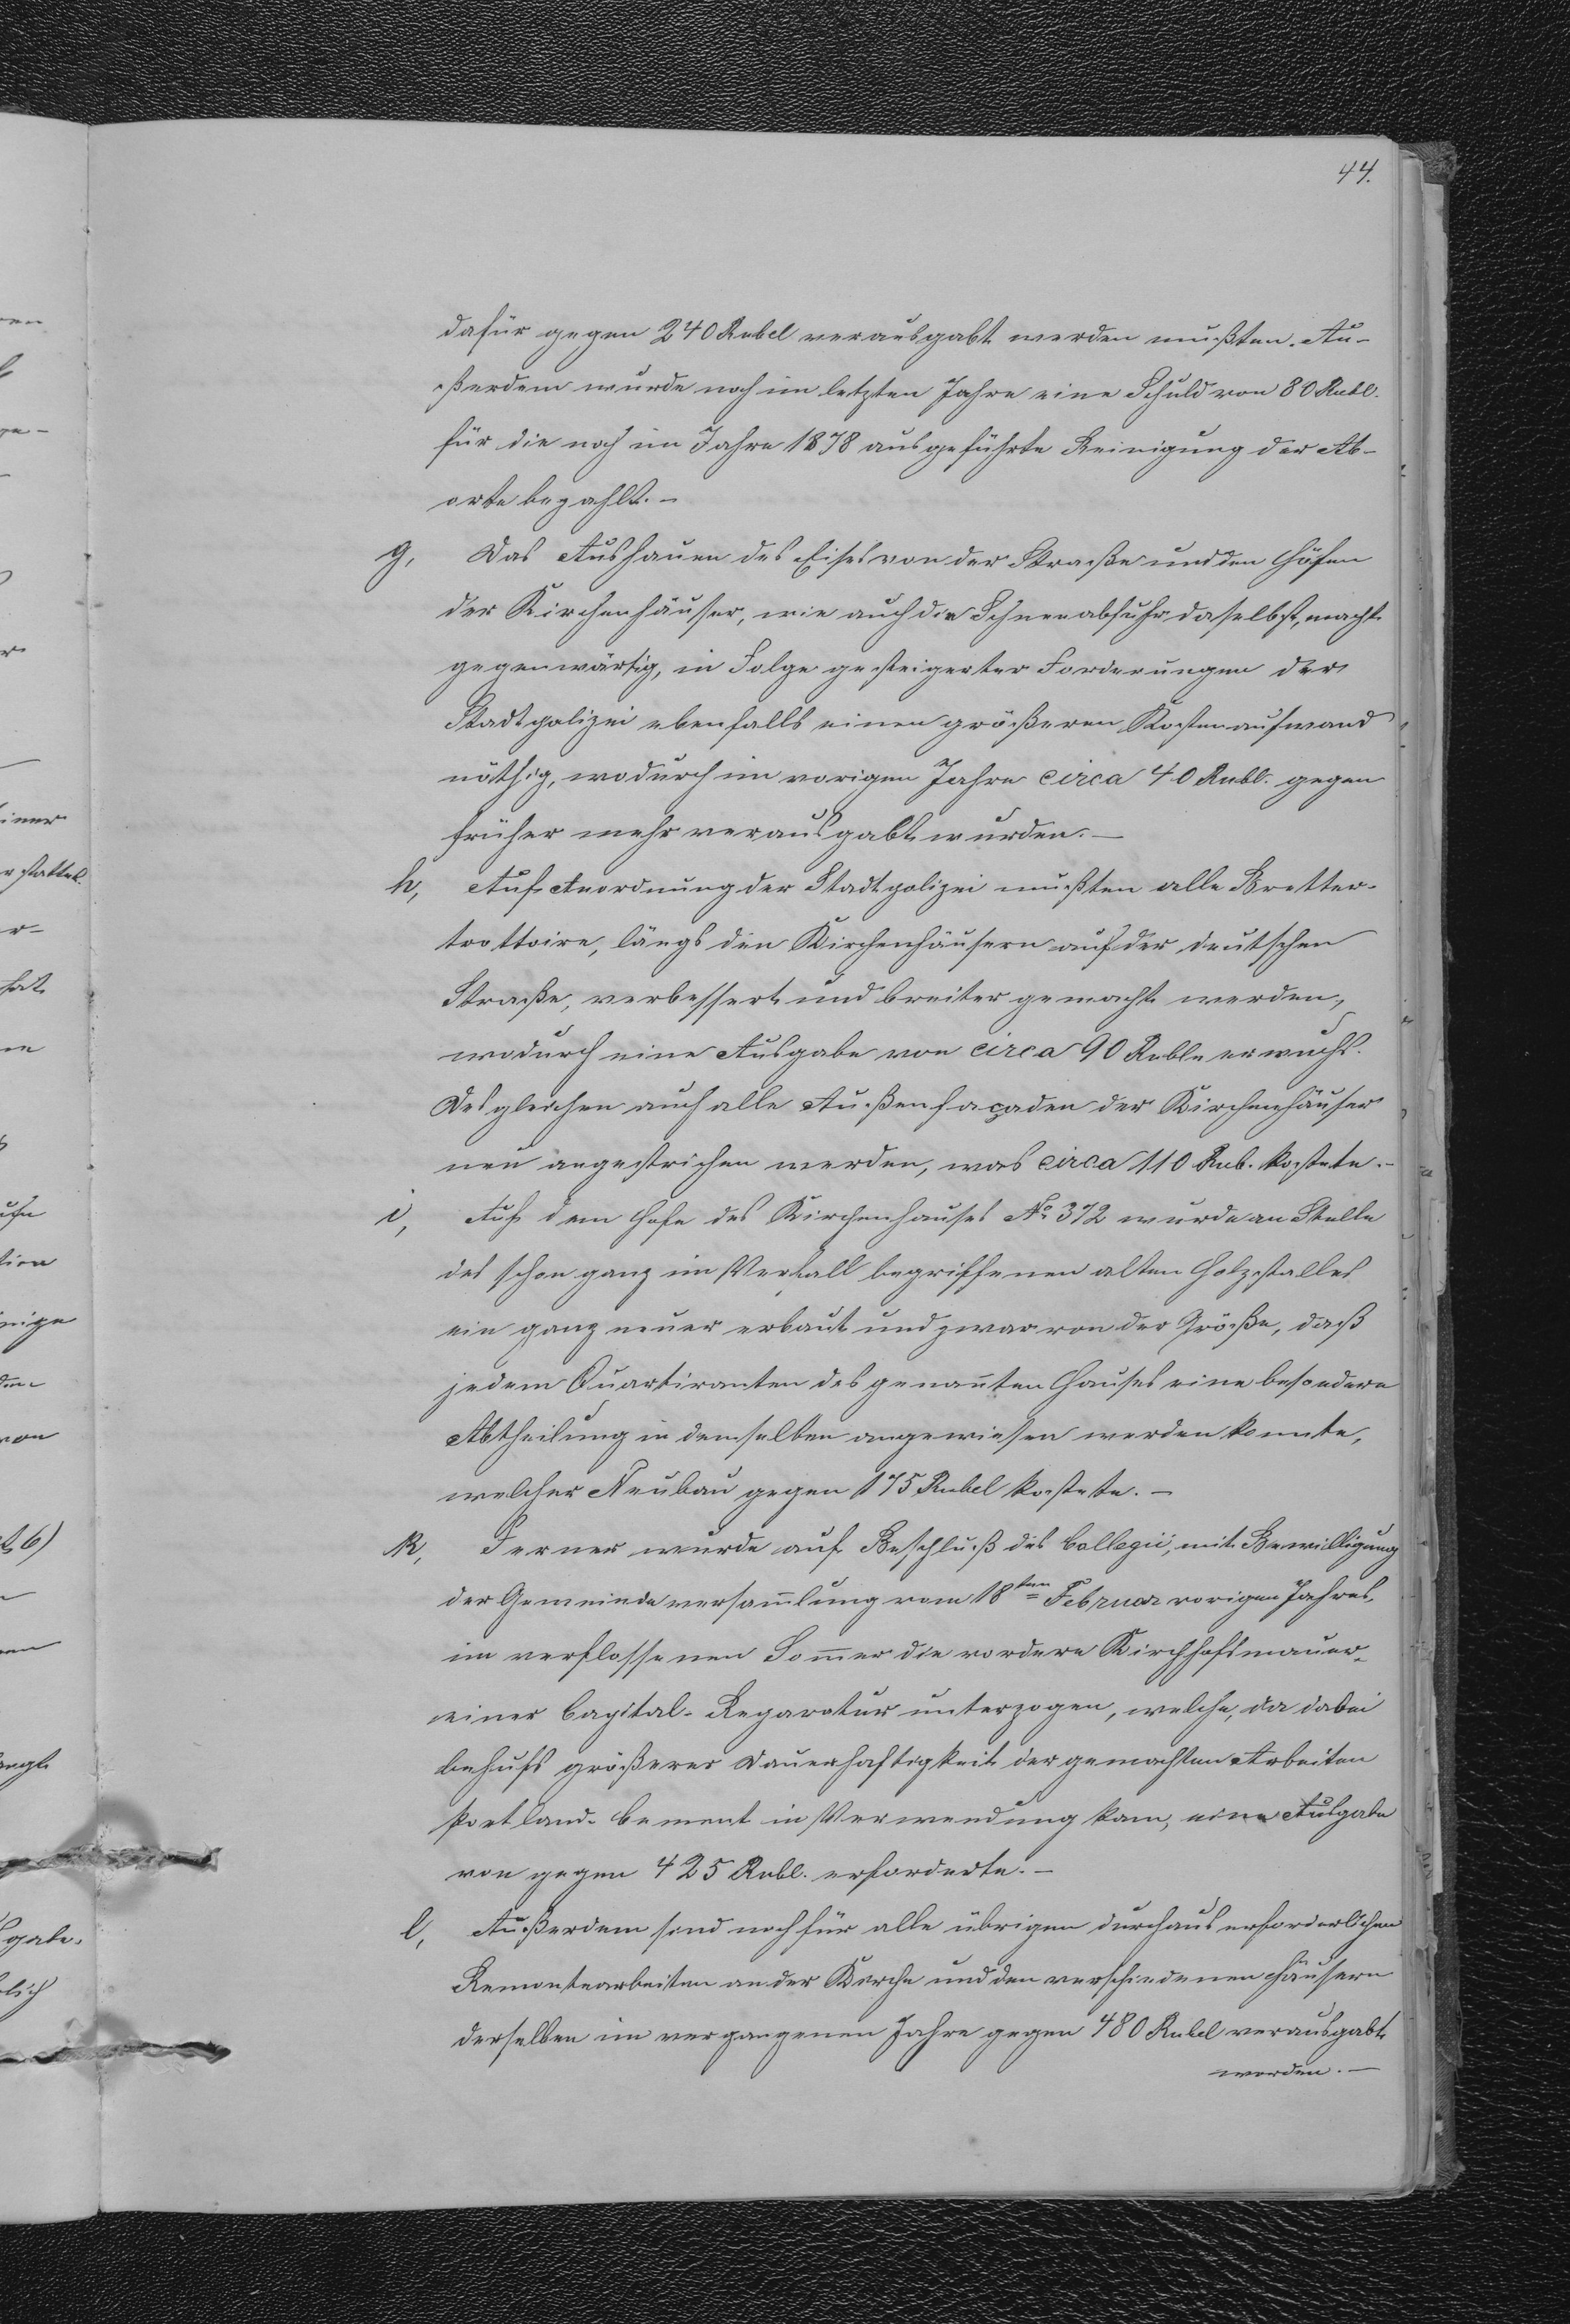 44.
dafür gegen 240 Rubel verausgabt werden mußten. Au-
ßerdem wurde noch im letzten Jahre eine Schuld von 80 Rubl.
für die noch im Jahre 1878 ausgeführte Reinigung der Ab-
orte bezahlt. –
g, Das Aushauen des Eises von der Straße und den Höfen
der Kirchenhäuser, wie auch die Schneeabfuhr daselbst, macht
gegenwärtig, in Folge gesteigerter Forderungen der
Stadtpolizei ebenfalls einen größeren Kostenaufwand
nöthig, wodurch im vorigen Jahre circa 40 Rubl. gegen
früher mehr verausgabt wurden. –
h, Auf Anordnung der Stadtpolizei mußten alle Bretter-
trottoire, längs den Kirchenhäusern auf der deutschen
Straße, verbessert und breiter gemacht werden,
wodurch eine Ausgabe von circa 90 Rubln erwuchs.
Desgleichen auch alle Außenfaçaden der Kirchenhäuser
neu angestrichen werden, was circa 110 Rub. kostete. –
i, Auf dem Hofe des Kirchenhauses No 372 wurde an Stelle
des schon ganz im Verfall begriffenen alten Holzstalles
ein ganz neuer erbaut und zwar von der Größe, daß
jedem Quartiranten des genannten Hauses eine besondere
Abtheilung in demselben angewiesen werden konnte,
welcher Neubau gegen 175 Rubel kostete. –
k, Ferner wurde auf Beschluß des Collegii, mit Bewilligung
der Gemeindeversammlung vom 18ten Februar vorigen Jahres,
im verflossenen Sommer die vordere Kirchhofsmauer
einer Capital-Reparatur unterzogen, welche, da dabei
behufs größerer Dauerhaftigkeit der gemachten Arbeiten
Portland-Cement in Verwendung kam, eine Ausgabe
von gegen 425 Rubl. erforderte. –
l, Außerdem sind noch für alle übrigen durchaus erforderlichen
Remontearbeiten an der Kirche und den verschiedenen Häusern
derselben im vergangenen Jahre gegen 480 Rubel verausgabt
worden. –